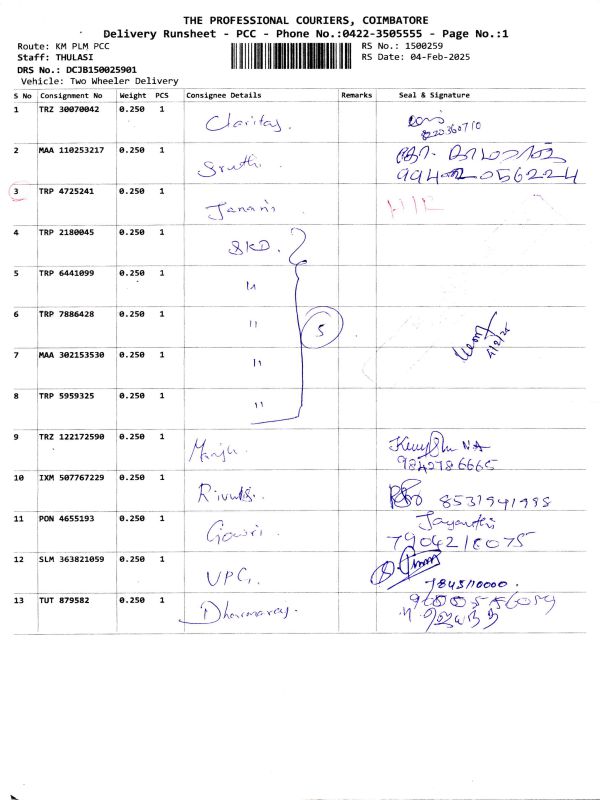 THE PROFESSIONAL COURIERS, COIMBATORE
Delivery Runsheet - PCC - Phone No.:0422-3505555 - Page No.:1
Route: KM PLM PCC RS No.: 1500259
Staff: THULASI RS Date: 04-Feb-2025
DRS No.: DCJB150025901
Vehicle: Two Wheeler Delivery
S No Consignment No Weight PCS Consignee Details Remarks Seal & Signature
1 TRZ 30070042 0.250 1 Claritas.
8220360710
2 MAA 110253217 0.250 1 Sruthi.
3 TRP 4725241 0.250 1 Janani
4 TRP 2180045 0.250 1 SKD.
5 TRP 6441099 0.250 1 "
6 TRP 7886428 0.250 1 " 5
4/2/25
7 MAA 302153530 0.250 1 "
8 TRP 5959325 0.250 1 "
9 TRZ 122172590 0.250 1 Manju.
9842786665
10 IXM 507767229 0.250 1 8531941998
11 PON 4655193 0.250 1 Gowri. Jayanthi
7904218075
12 SLM 363821059 0.250 1 UPC,
7845110000.
13 TUT 879582 0.250 1 Dharmaraj.